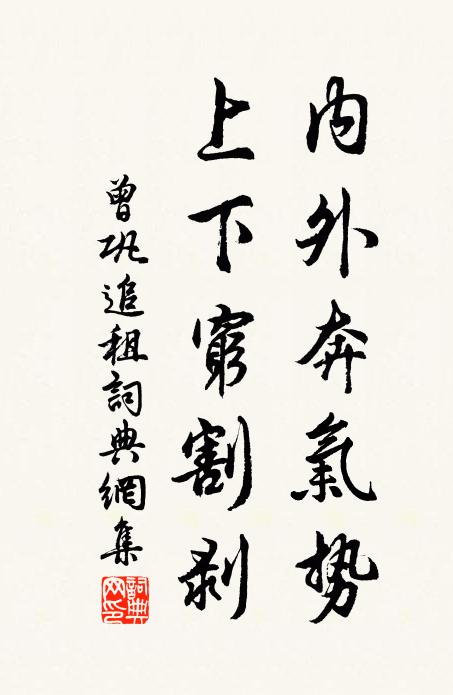 内外奔氣势
上下窮割剥
曾巩追租詞典網集
詞典网印